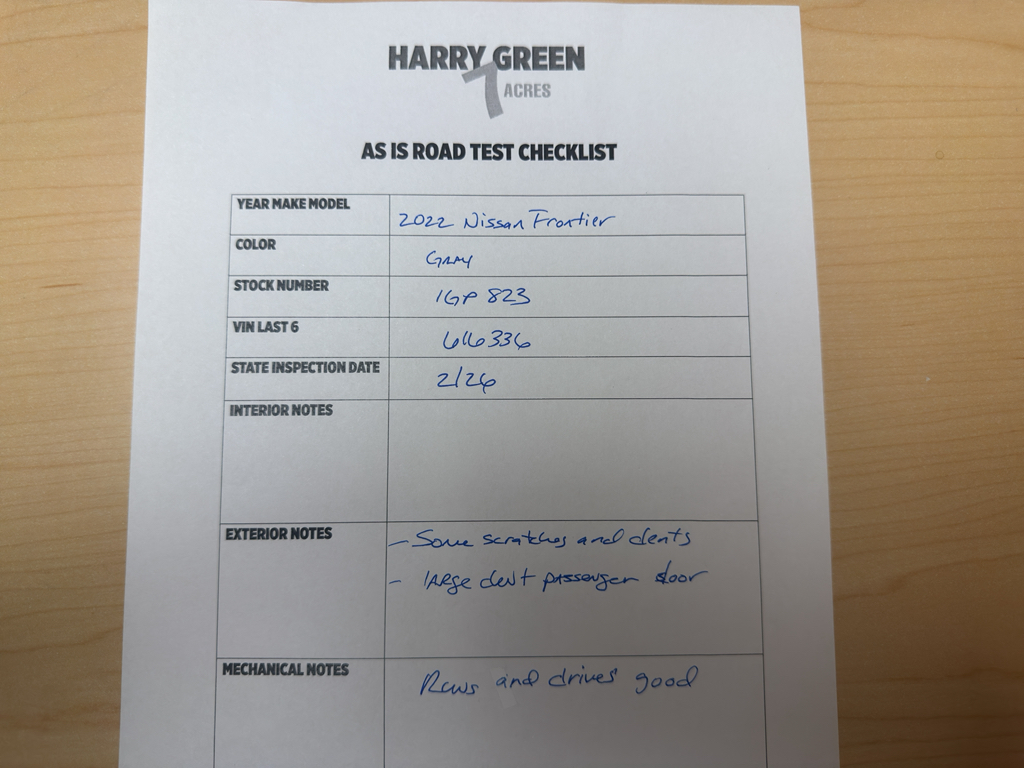 HARRY GREEN
7 ACRES
AS IS ROAD TEST CHECKLIST
YEAR MAKE MODEL 2022 Nissan Frontier
COLOR GRAY
STOCK NUMBER 1GP 823
VIN LAST 6 616336
STATE INSPECTION DATE 2/26
INTERIOR NOTES
EXTERIOR NOTES - Some scratches and dents
- lARge dent passenger door
MECHANICAL NOTES Runs and drives good